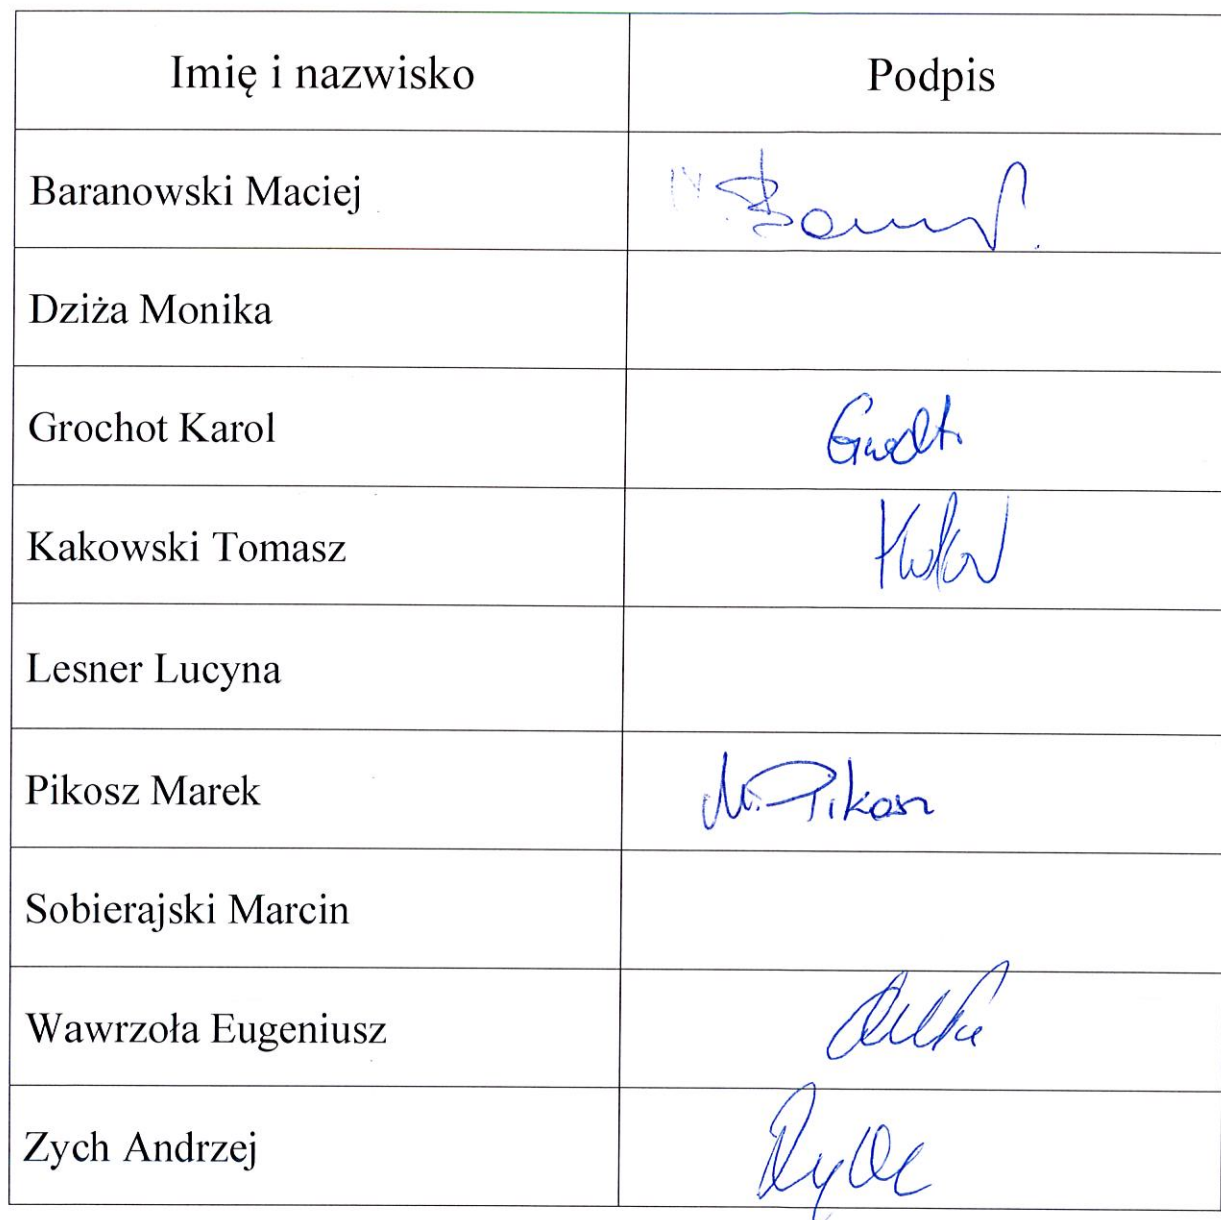 Imię i nazwisko Podpis
Baranowski Maciej
Dziża Monika
Grochot Karol
Kakowski Tomasz
Lesner Lucyna
Pikosz Marek M. Pikosz
Sobierajski Marcin
Wawrzoła Eugeniusz
Zych Andrzej